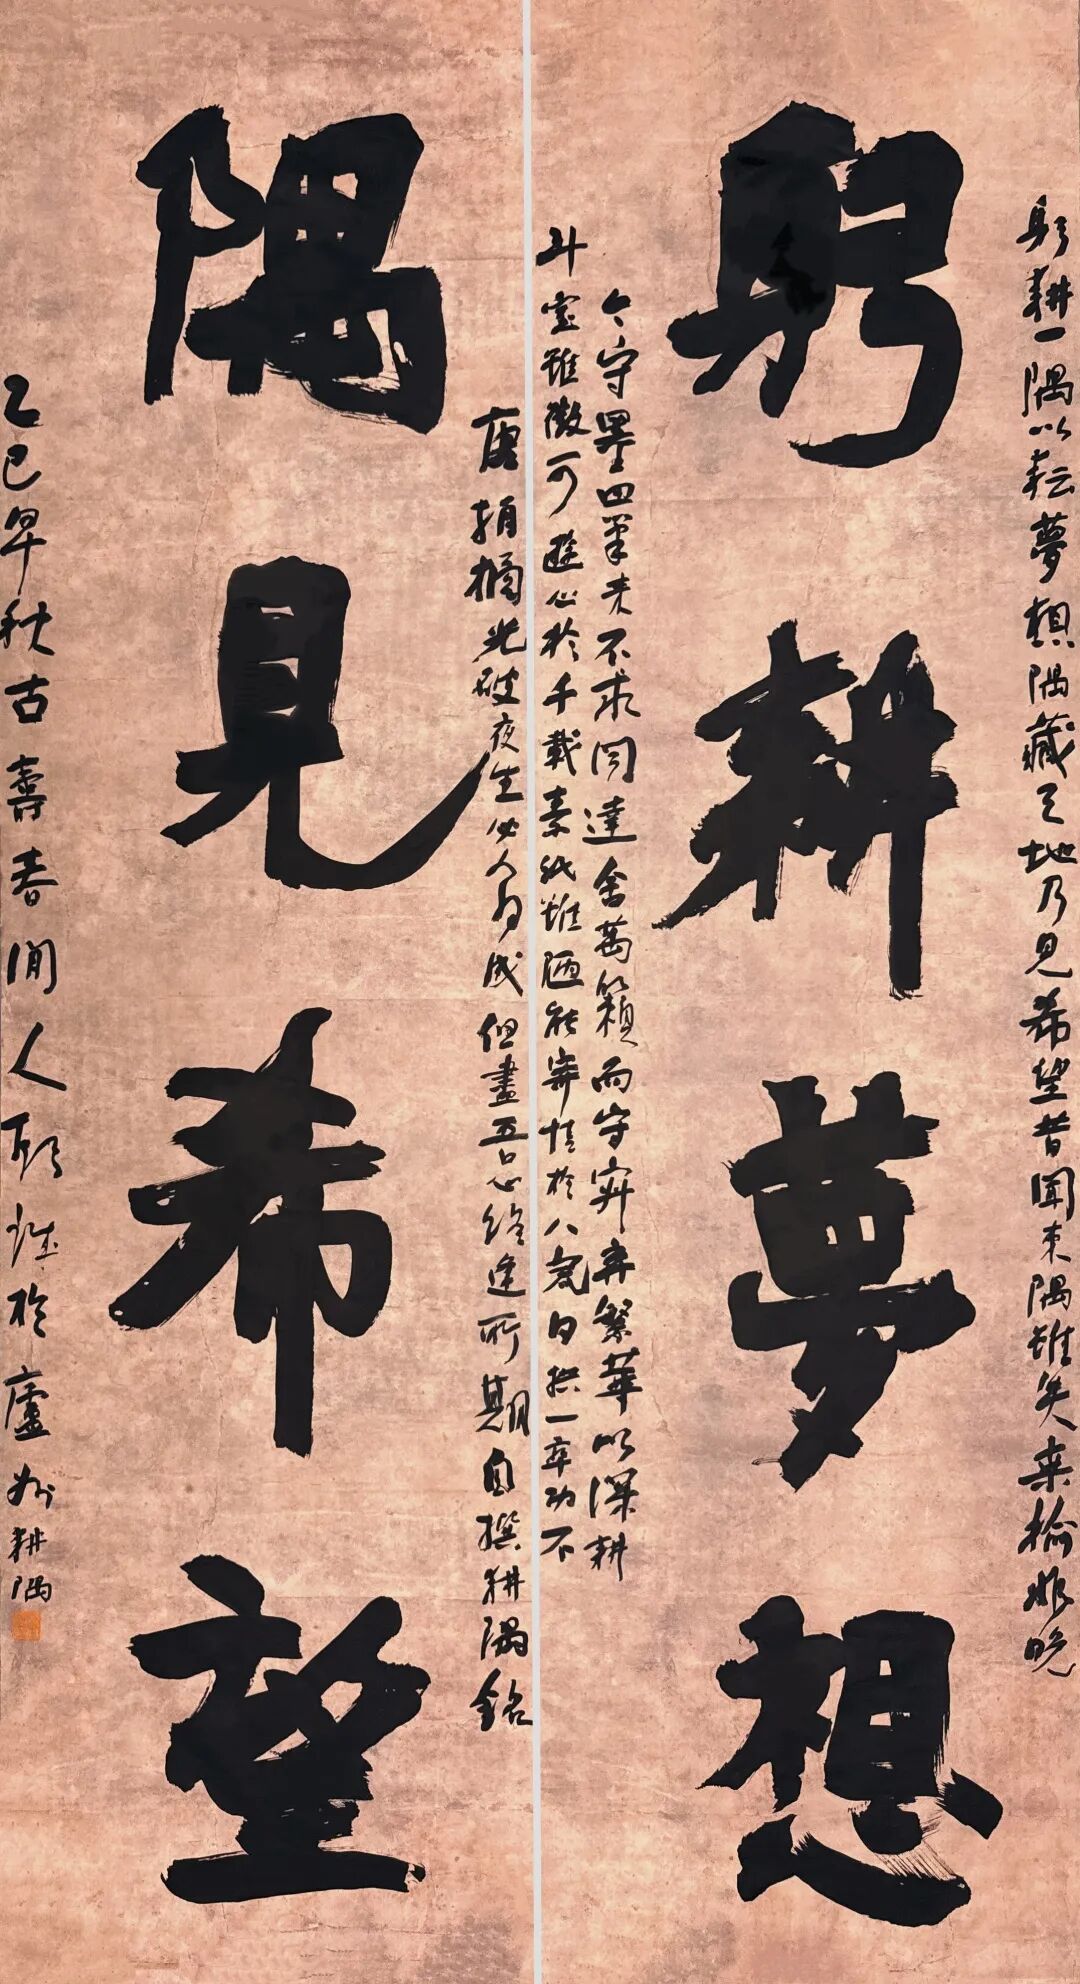 躬耕夢想
隅見希望
躬耕一隅以耘夢想隅藏天地乃見希望昔聞東隅雖失桑榆非晚
今守墨四筆耒不求聞達舍萬籟而守寂弃繁華以深耕
斗室雖微可遊心於千載素紙雖陋能寄情於八荒日拱一卒功不
唐捐橘光破夜生必人可成但盡吾心終逢所期自撰耕隅銘
乙巳早秋古壽春閒人於廬州耕隅